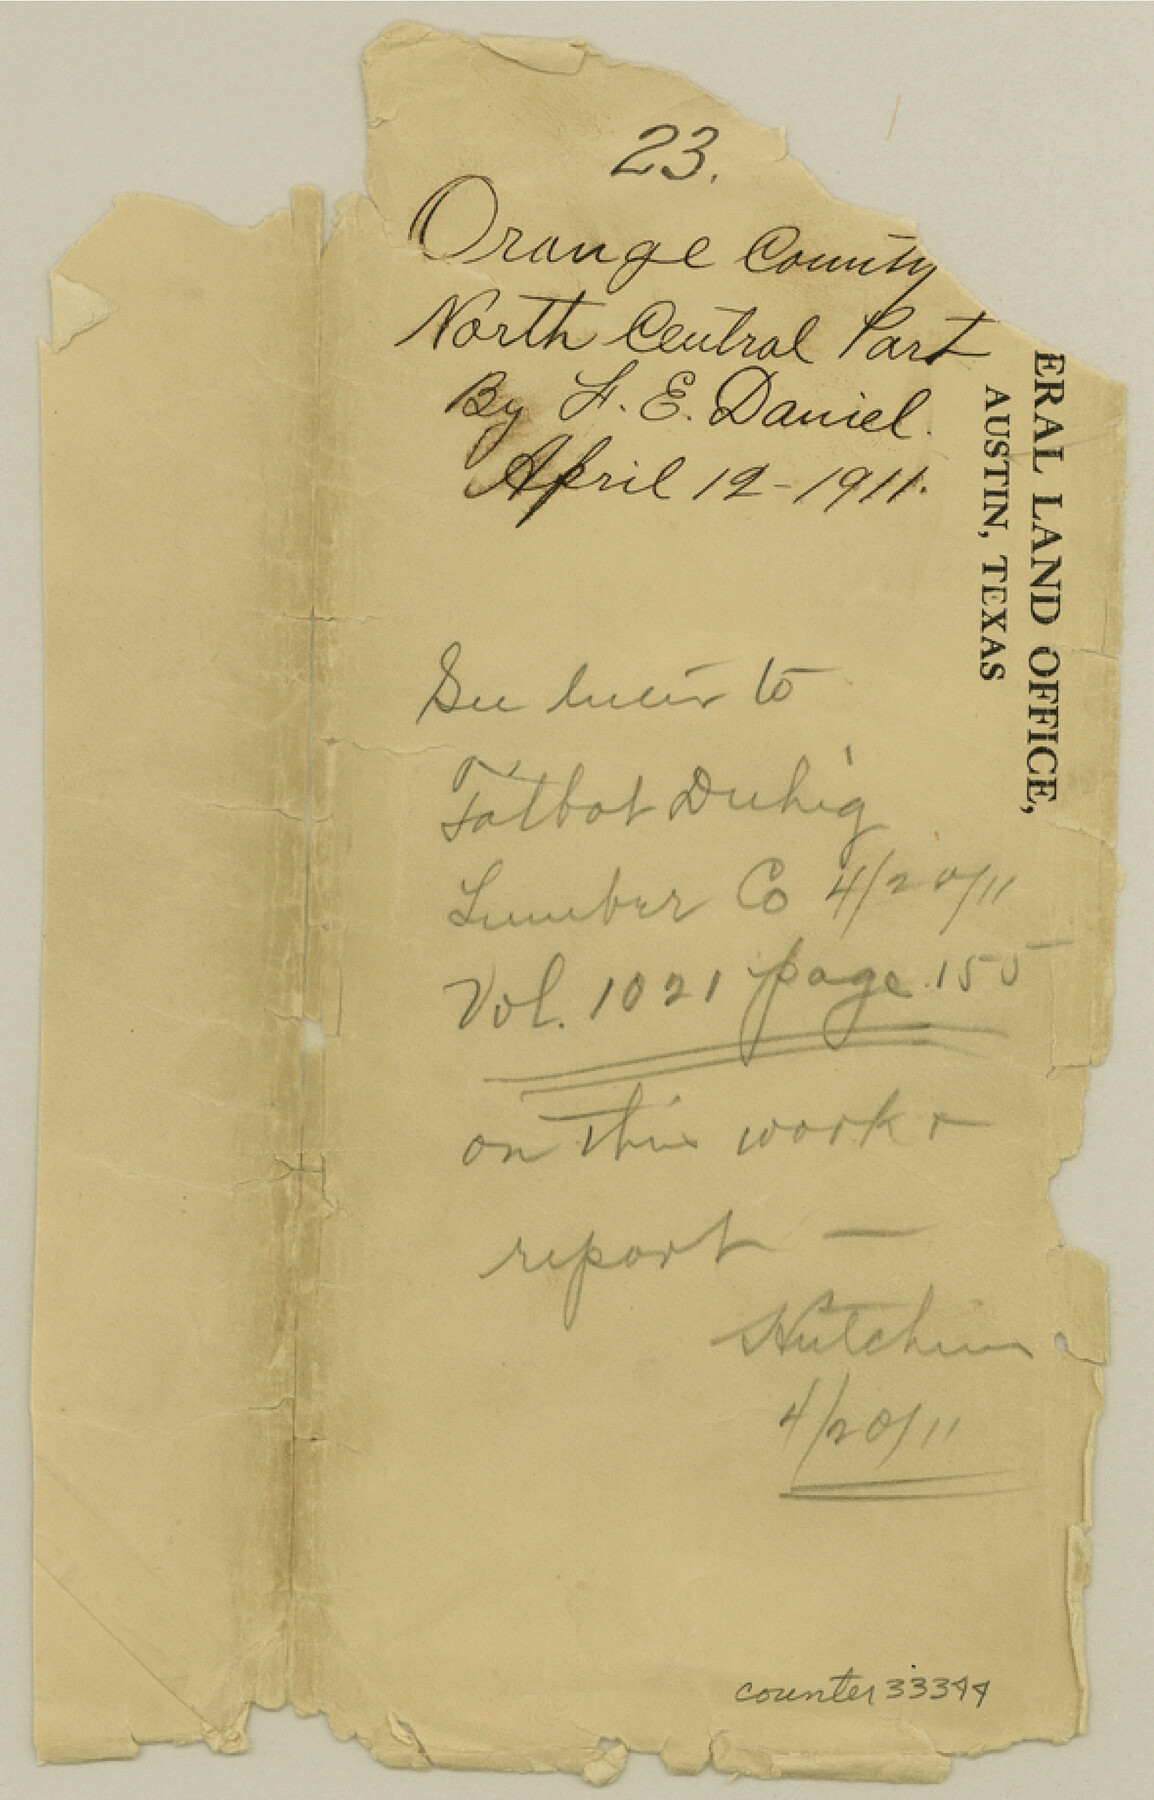 23.
Orange County
North Central Part
By F. E. Daniel.
April 12-1911.
ERAL LAND OFFICE,
AUSTIN, TEXAS
See letter to
Talbot Duhig
Lumber Co 4/20/11
Vol. 1021 page 155
on this work &
report —
Hutchins
4/20/11
counter 33344